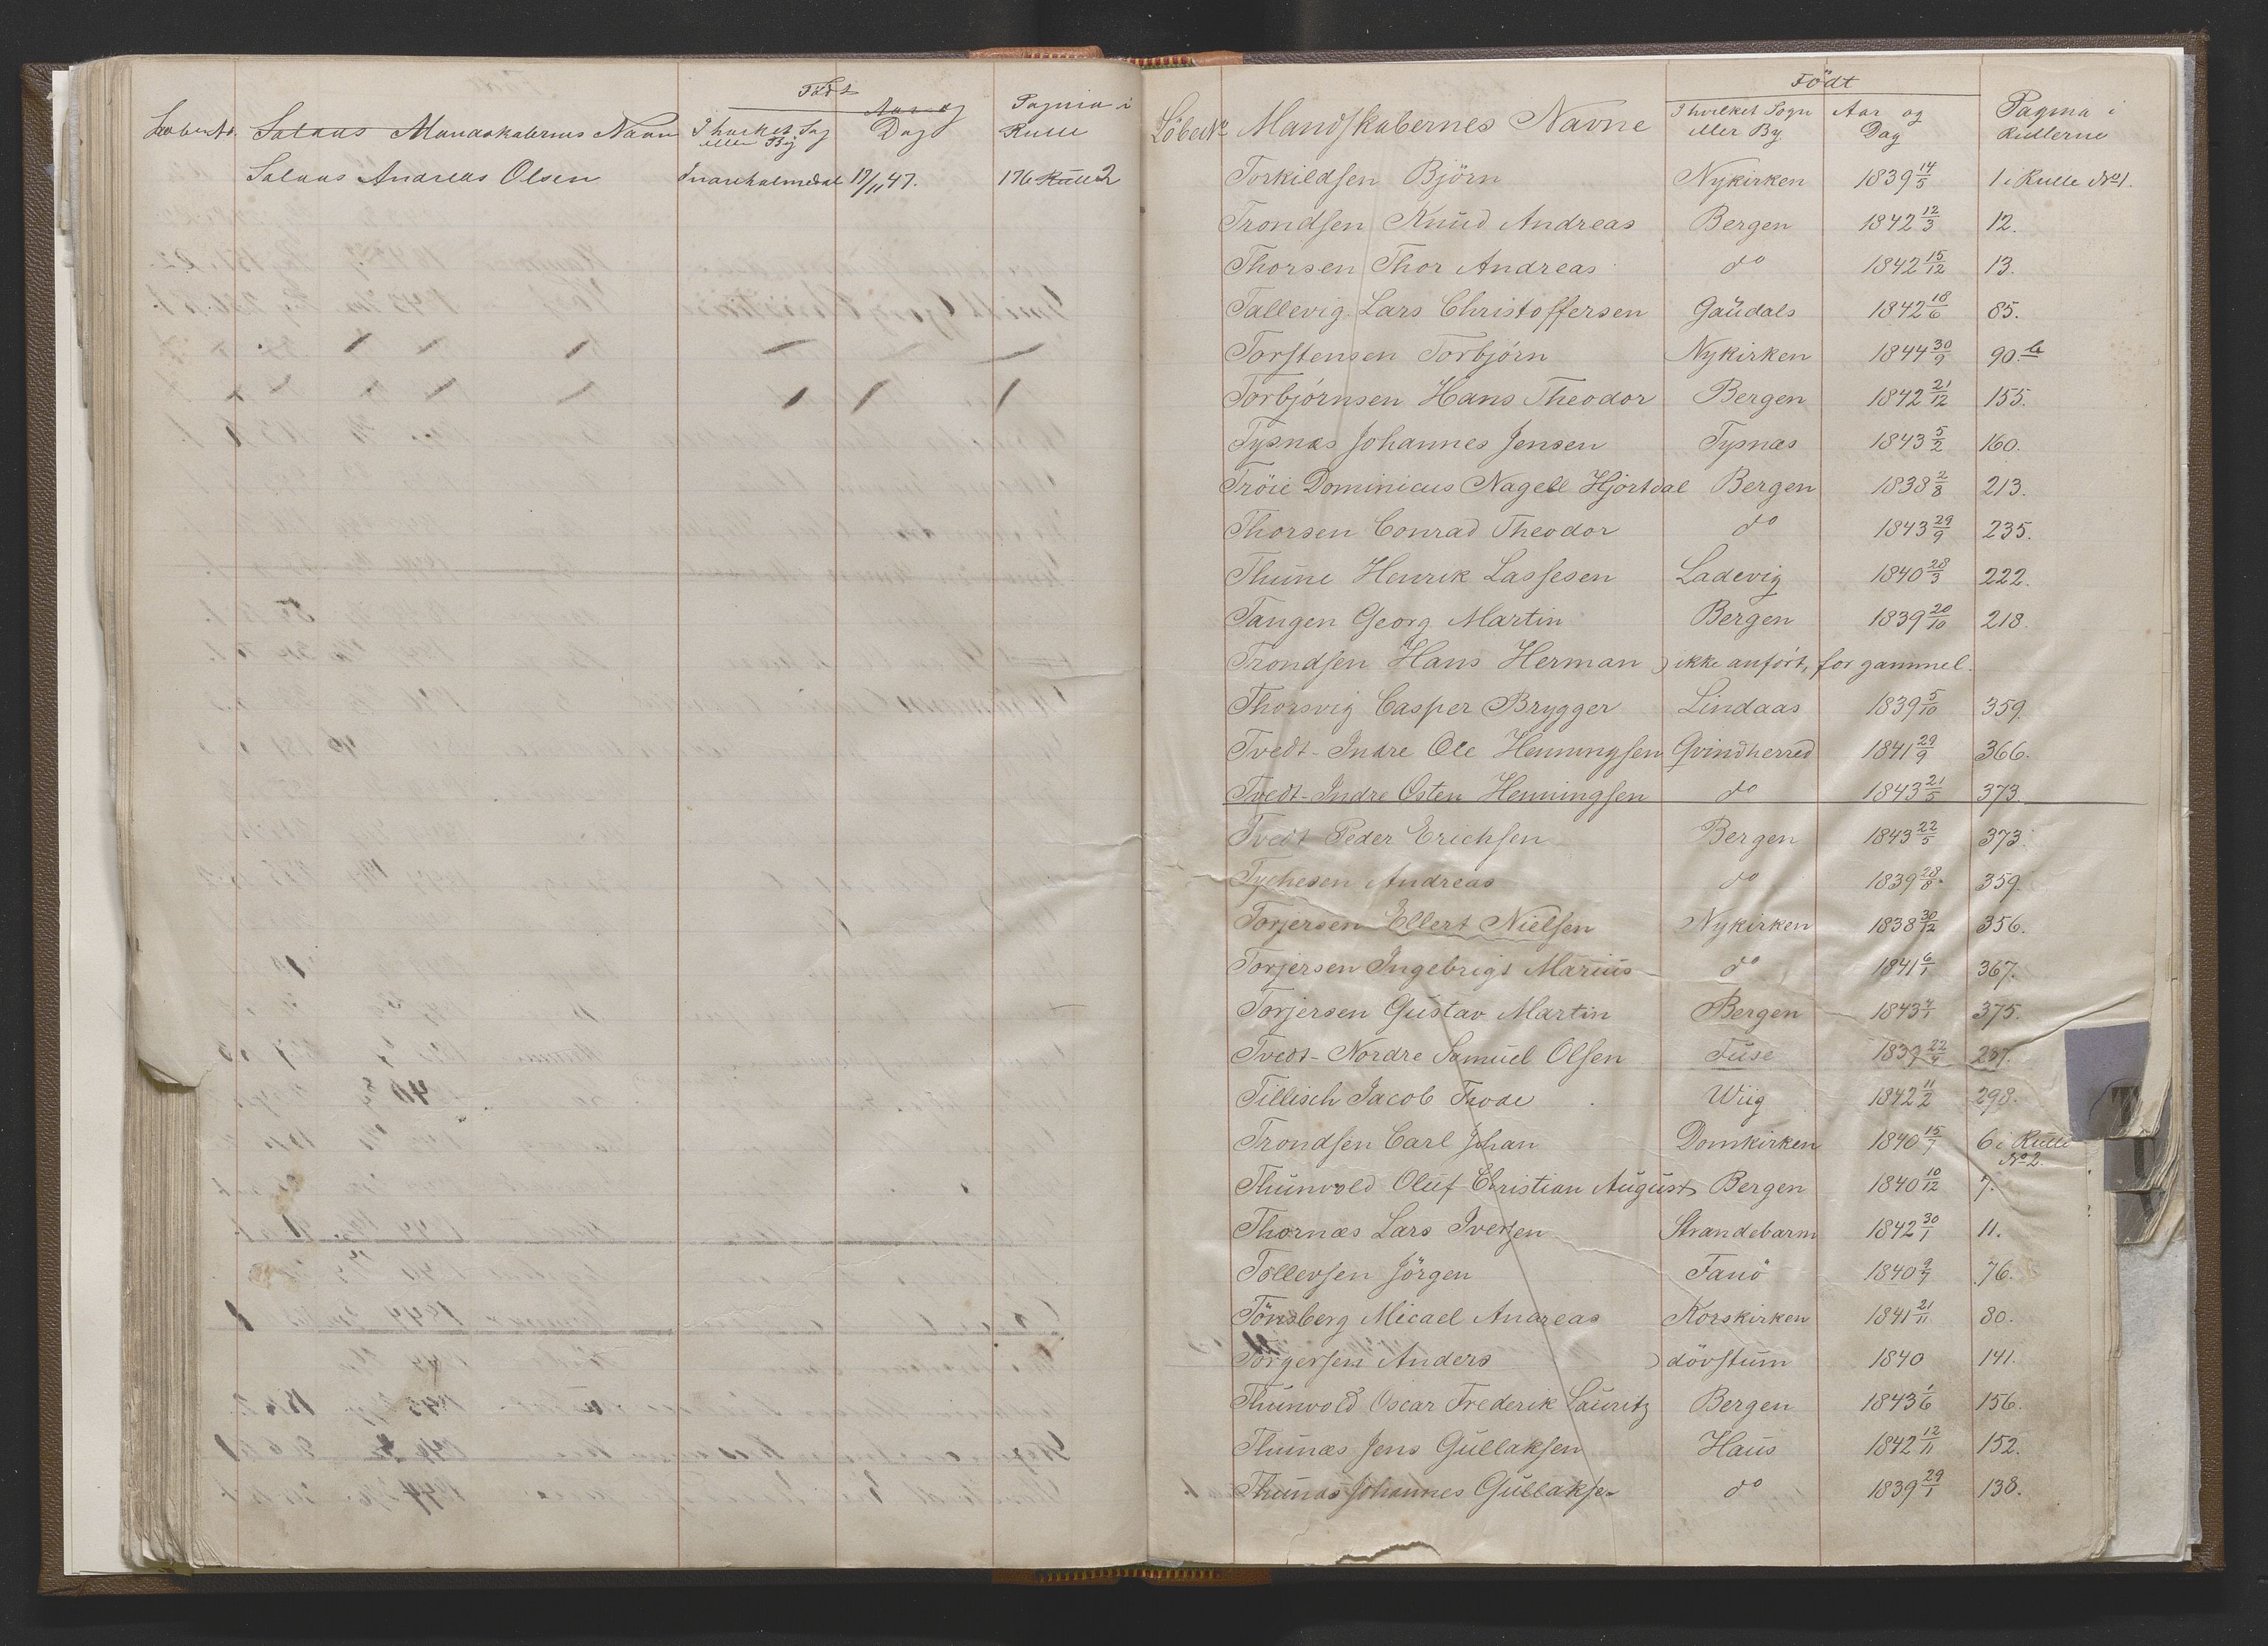 Født
LøbeNo. Salaas Mandskabernes Navn I hvilket Sog eller By Aar og Dag Pagina i Rulle
Salaas Andreas Olsen 17/11 47. 176 Rulle 2
Født
LøbeNo Mandskabernes Navne I hvilket Sogn eller By Aar og Dag Pagina i Rullerne
Torkildsen Björn Nykirken 1839 14/5 1 i Rulle No 1.
Trondsen Knud Andreas Bergen 1842 12/3 12.
Thorsen Thor Andreas do 1842 15/12 13.
Tallevig Lars Christoffersen Gaúdals 1842 18/6 85.
Torstensen Torbjörn Nykirken 1844 30/9 90.b
Torbjörnsen Hans Theodor Bergen 1842 21/12 155.
Tysnæs Johannes Jensen Tysnæs 1843 5/2 160.
Tröie Dominicus Nagell Hjortdal Bergen 1838 2/8 213.
Thorsen Conrad Theodor do 1843 29/9 235.
Thune Henrik Lassesen Ladevig 1840 28/3 222.
Tangen Georg Martin Bergen 1839 20/10 218.
Trondsen Hans Herman ) ikke anført, for gammel.
Thorsvig Casper Brygger Lindaas 1839 5/10 359.
Tvedt-Indre Ole Henningsen Qvindherred 1841 29/9 366.
Tvedt-Indre Østen Henningsen do 1843 21/5 373.
Tvedt Peder Erichsen Bergen 1843 22/5 373.
Tychesen Andreas do 1839 28/8. 359.
Torjersen Ellert Nielsen Nykirken 1838 30/12 356.
Torjersen Ingebrigt Marius do 1841 6/1 367.
Torjersen Gustav Martin Bergen 1843 4/1 375.
Tvedt-Nordre Samuel Olsen Fuse 1839 22/4 287.
Tillisch Jacob Thode Wiig 1842 11/2 298.
Trondsen Carl Johan Domkirken 1840 15/7 6 i Rulle No 2.
Thunvold Oluf Christian August Bergen 1840 10/12 7.
Thornæs Lars Iversen Strandebarm 1842 30/1 11.
Tollevsen Jörgen Fanö 1840 9/7 76.
Tönsberg Micael Andreas Korskirken 1841 21/11 80.
Torgersen Anders ) dövstum 1840 141.
Thunvold Oscar Frederik Lauritz Bergen 1843 1/6 156.
Thunæs Jens Gullaksen Haus 1842 12/11 152.
Thunæs Johannes Gullaksen do 1839 29/1 138.